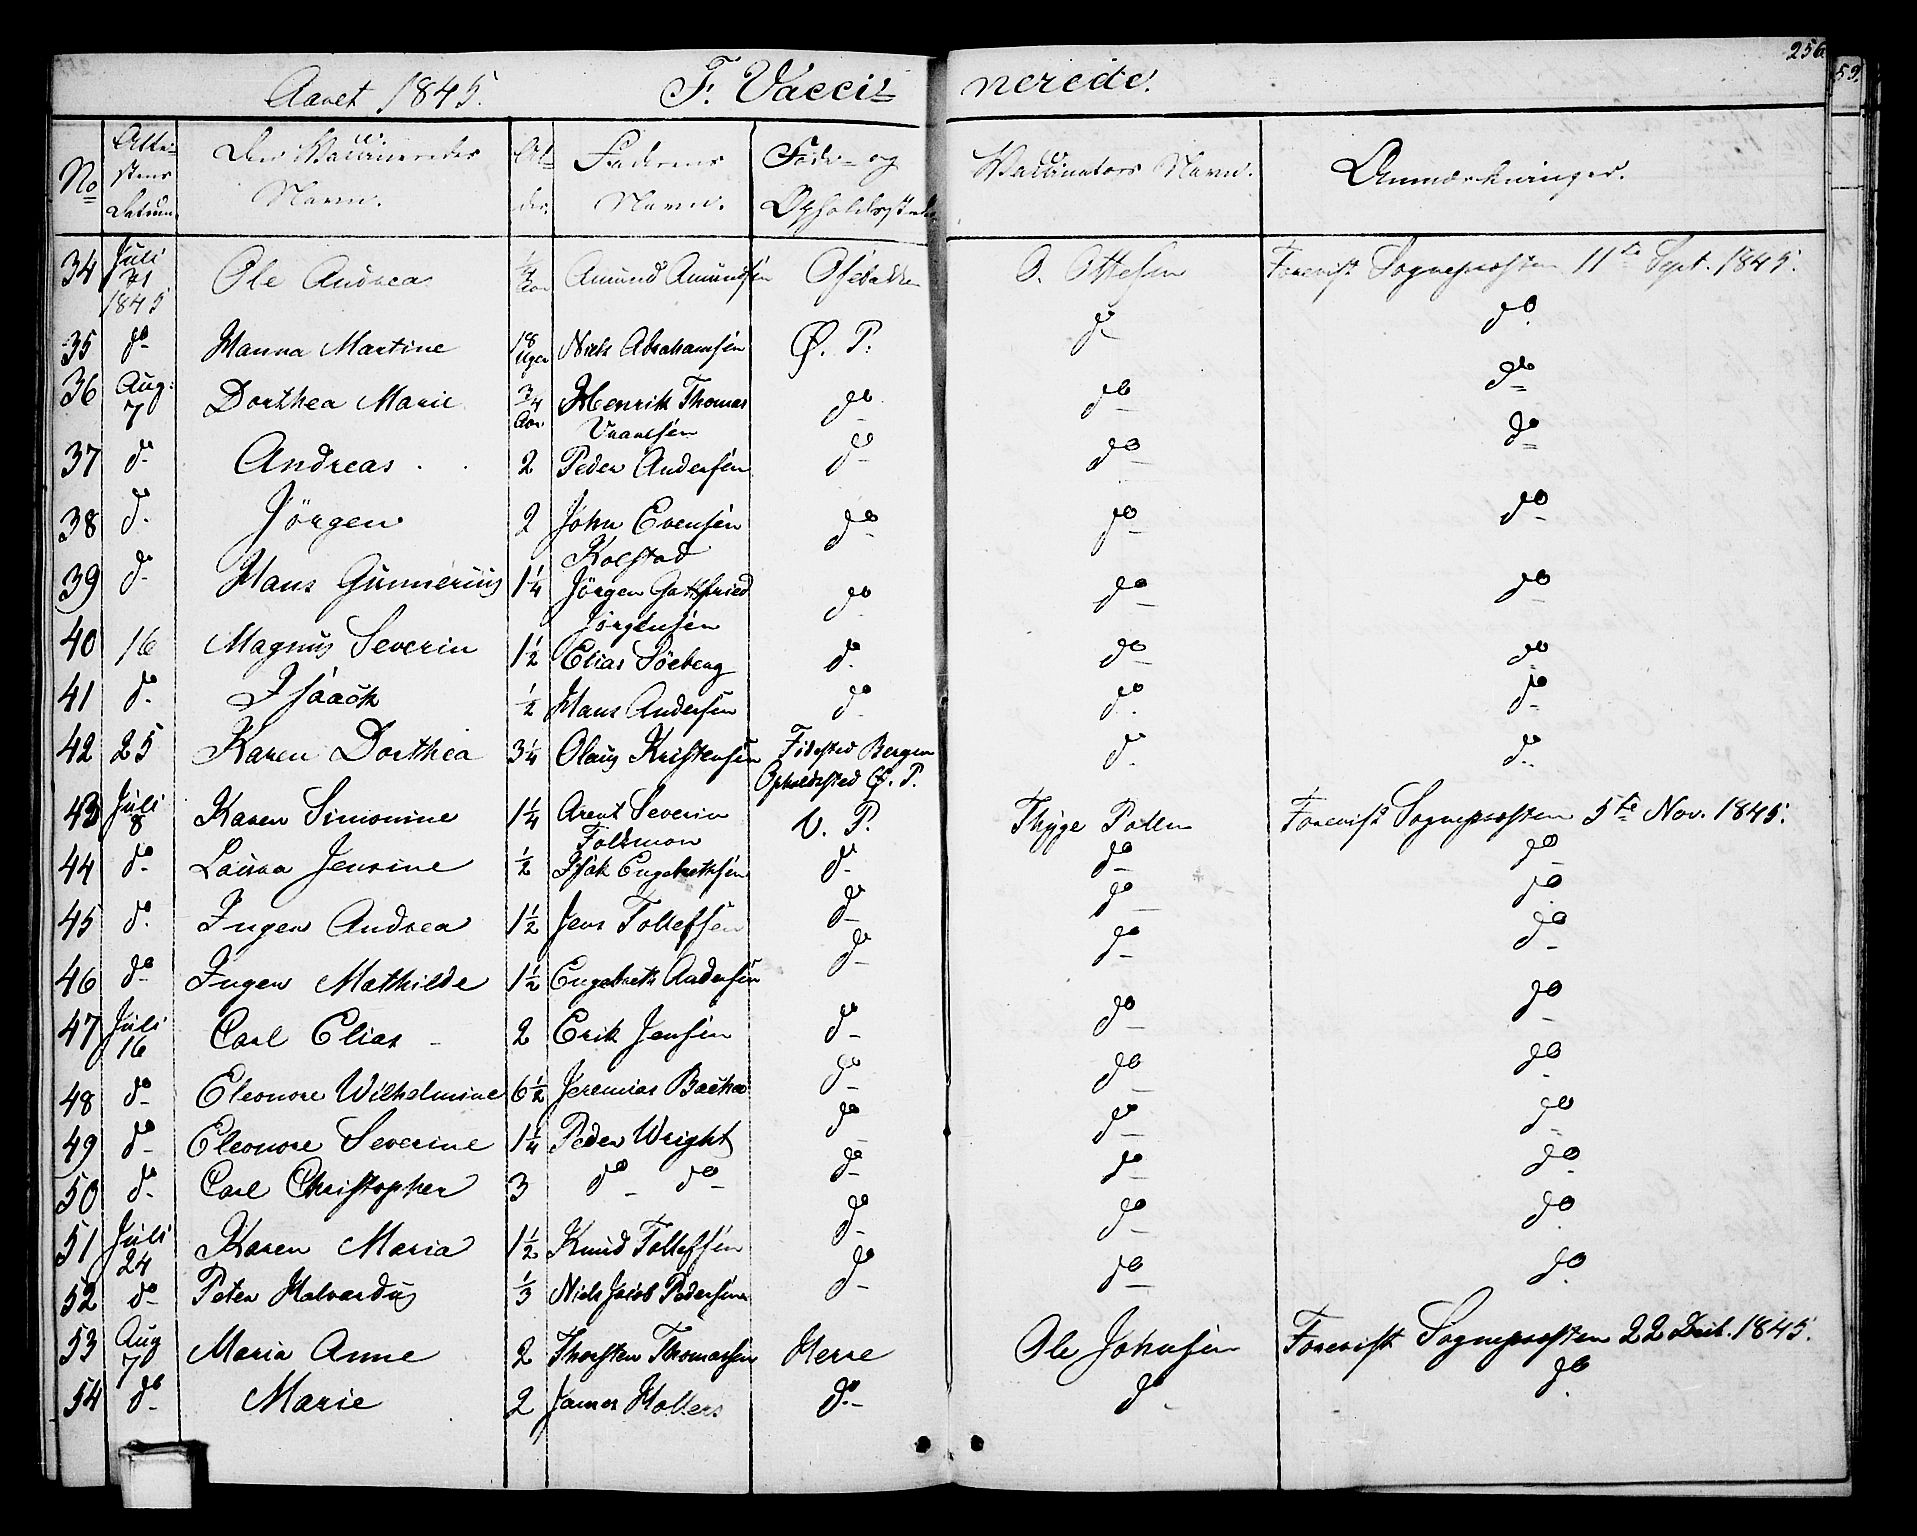 256
59.
Aaret 1845. F. Vacci= nerede.
No Atte=stens Datum. Den Vaccineredes Navn. Al=der. Faderens Navn. Føde- og Opholdssteder Vaccinators Navn. Anmærkninger.
34 Juli 31 1845 Ole Andrea ¼ Aar Amund Amundsen Osebakken O. Ottesen Forevist Sognepræsten 11te Sept. 1845.
35 do Hanna Martine 18 Uger Niels Abrahamsen Ø. P. do do
36 Aug: 7 Dorthea Marie ¾ Aar Henrik Thomas do do do
37 do Andreas 2 Peder Andersen do do do
38 do Jörgen 2 John Evensen Kolstad do do do
39 do Hans Gunnerius 1¼ Jörgen Gottfried Jörgensen do do do
40 16 Magnus Severin 1½ Elias Söeberg do do do
41 do Isaack ½ Hans Andersen do do do
42 25 Karen Dorthea 3¼ Olaus Kristensen Födested Bergen Opholdssted Ø. P. do do
43 Juli 8 Karen Simonine 1¼ Arent Severin Foltmon V. P. Thyge Polten Forevist Sognepræsten 5te Nov. 1845.
44 do Laura Jensine ½ Isak Engebrethsen do do do
45 do Ingen Andrea 1½ Jens Tollefsen do do do
46 do Ingen Mathilde 1½ Engebreth Andersen do do do
47 Juli 16 Carl Elias 2 Erik Jensen do do do
48 do Eleonore Wilhelmine 6½ Jeremias Backa do do do
49 do Eleonore Severine 1¼ Peder Wright do do do
50 do Carl Christopher 3 do do do do do
51 Juli 24 Karen Maria 1½ Knud Tollefsen do do do
52 do Peter Halvardus ⅓ Niels Jacob Pedersen do do do
53 Aug 7 Maria Anne 2 Thorsten Thomassen Herre Ole Johnsen Forevist Sognepræsten 22 Decb. 1845.
54 do Marie 2 James Hollers do do do